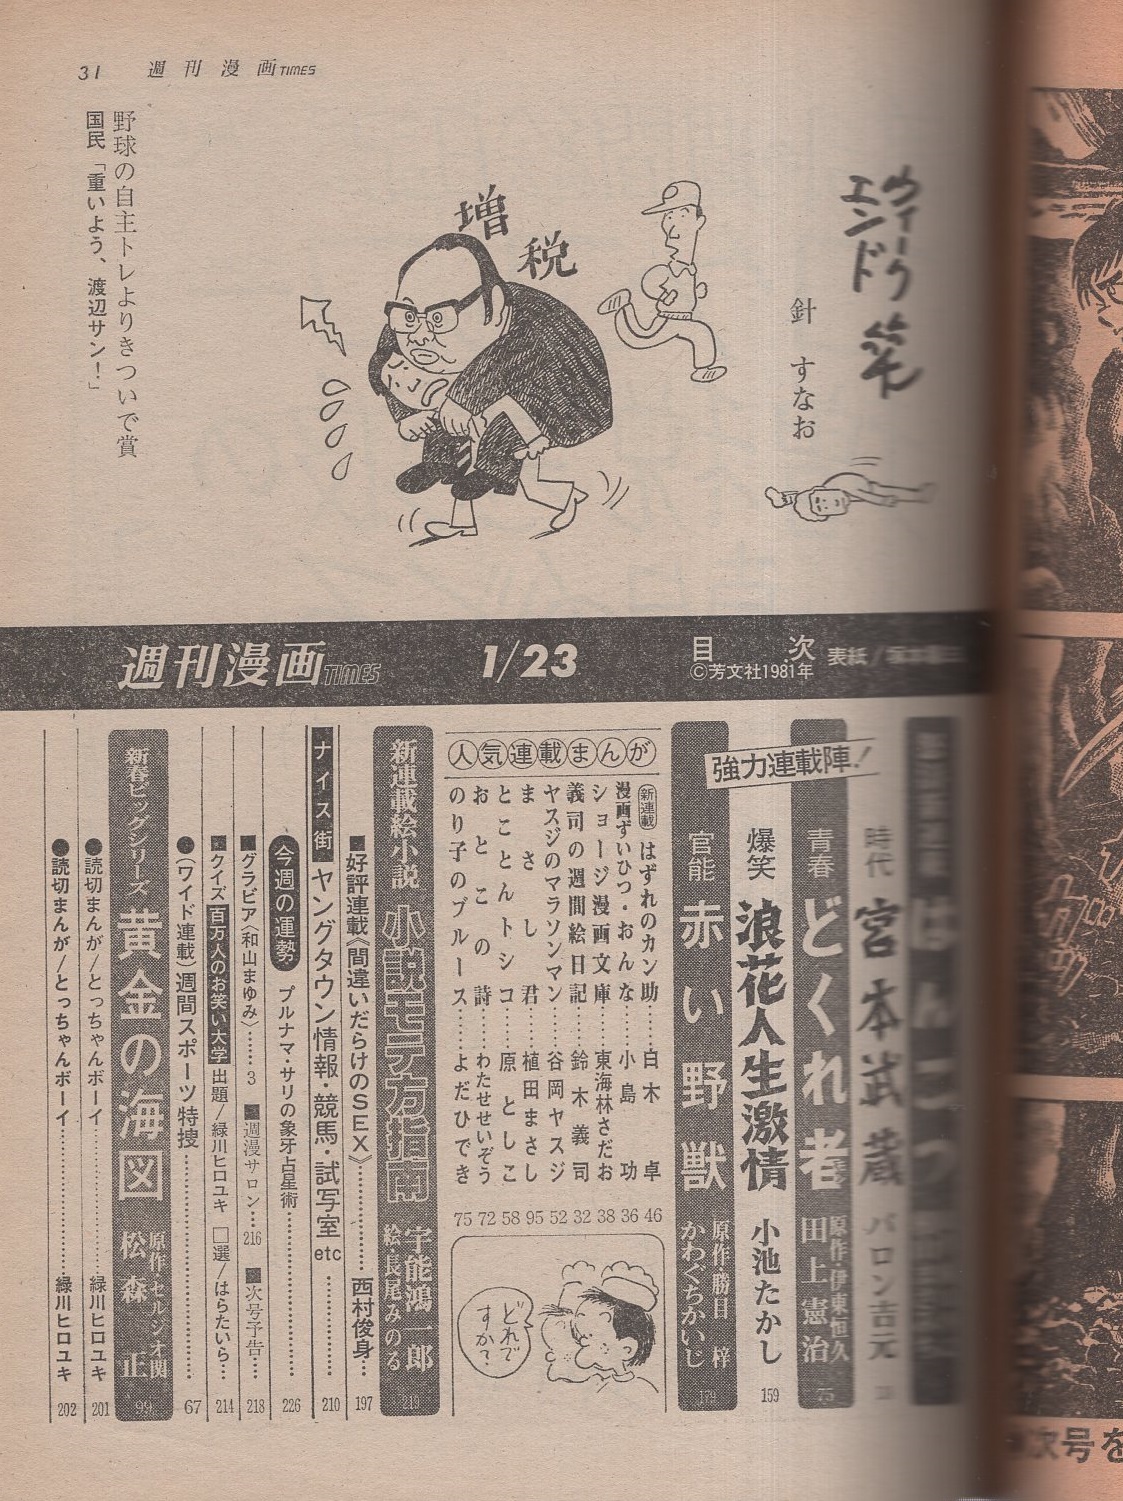 31 週刊漫画TIMES
ウィークエンド笔
針 すなお
増税
野球の自主トレよりきついで賞
国民「重いよう、渡辺サン！」
週刊漫画TIMES 1/23 目次
©芳文社1981年
表紙/
強力連載陣！
はんこつ
時代 宮本武蔵 バロン吉元
青春 どくれ者 原作・伊東恒久 田上憲治 75
爆笑 浪花人生激情 小池たかし 159
官能 赤い野獣 原作・勝目梓 かわぐちかいじ 179
人気連載まんが
新連載 はずれのカン助……白木卓 46
漫画ずいひつ・おんな……小島功 36
ショージ漫画文庫……東海林さだお 38
義司の週間絵日記……鈴木義司 32
ヤスジのマラソンマン……谷岡ヤスジ 52
まさし君……植田まさし 95
とことんトシコ……原としこ 58
おとこの詩……わたせせいぞう 72
のり子のブルース……よだひでき 75
どれですか？
新連載絵小説 小説モテ方指南 宇能鴻一郎 絵・長尾みのる 219
■好評連載《間違いだらけのSEX》……西村俊身… 197
ナイス街 ヤングタウン情報・競馬・試写室etc…… 210
今週の運勢 プルナマ・サリの象牙占星術…… 226
■グラビア〈和山まゆみ〉……3 ■週漫サロン…216 ■次号予告… 218
■クイズ 百万人のお笑い大学 出題/緑川ヒロユキ □選/はらたいら… 214
●〈ワイド連載〉週間スポーツ特捜…… 67
新春ビッグシリーズ 黄金の海図 原作・セルジオ関 松森正 99
●読切まんが/とっちゃんボーイ……緑川ヒロユキ 201
●読切まんが/とっちゃんボーイ……緑川ヒロユキ 202
次号を